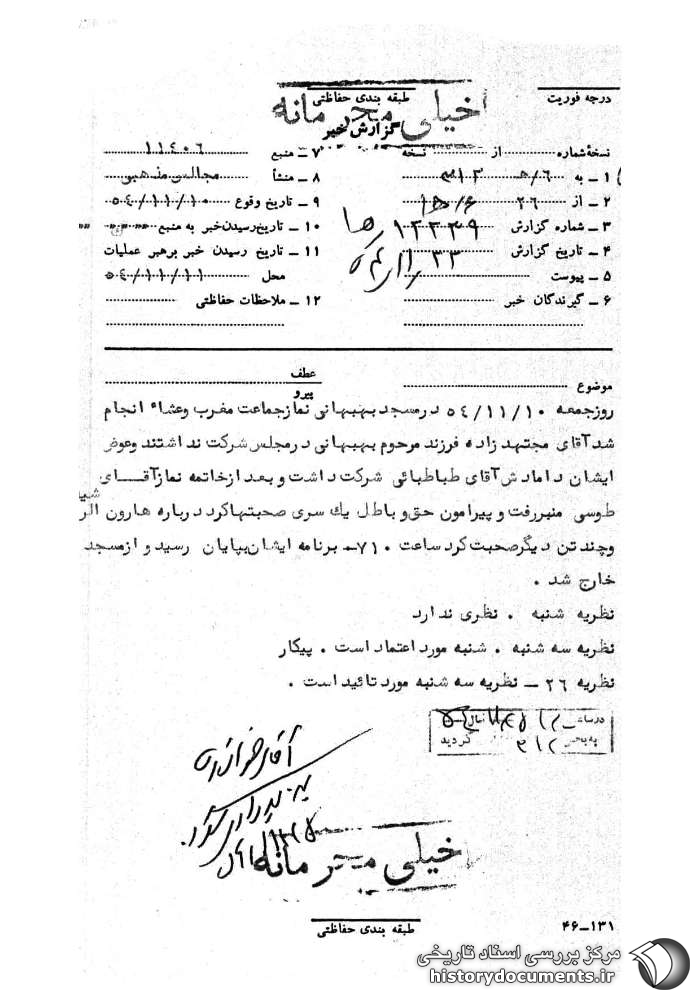 طبقه بندی حفاظتی
درجه فوریت
خیلی محرمانه
گزارش خبر
نسخه شماره از نسخه
۱ ـ به
۲ ـ از ۲۶
۳ ـ شماره گزارش ۱۲۳۳۹
۴ ـ تاریخ گزارش
۵ ـ پیوست
۶ ـ گیرندگان خبر
۷ ـ منبع ۱۱۴۰۶
۸ ـ منشأ مجالس مذهبی
۹ ـ تاریخ وقوع ۵۴/۱۱/۱۰
۱۰ ـ تاریخ رسیدن خبر به منبع » »
۱۱ ـ تاریخ رسیدن خبر برهبر عملیات
محل ۵۴/۱۱/۱۱
۱۲ ـ ملاحظات حفاظتی
موضوع
عطف
پیرو
روزجمعه ۵۴/۱۱/۱۰ درمسجد بهبهانی نمازجماعت مغرب وعشاء انجام
شد آقای مجتهد زاده فرزند مرحوم بهبهانی درمجلس شرکت نداشتند وعوض
ایشان دامادش آقای طباطبائی شرکت داشت و بعد ازخاتمه نمازآقـــای
طوسی منبررفت و پیرامون حق و باطل یك سری صحبتهاکرد درباره هارون الر
وچند تن دیگرصحبت کرد ساعت ۷۱۰- برنامه ایشان بپایان رسید و ازمسجد
خارج شد .
نظریه شنبه . نظری ندارد
نظریه سه شنبه . شنبه مورد اعتماد است . پیکار
نظریه ۲۶ ـ نظریه سه شنبه مورد تائید است .
گردید
خیلی محرمانه
طبقه بندی حفاظتی
۴۶-۱۳۱
مرکز بررسی اسناد تاریخی
historydocuments.ir